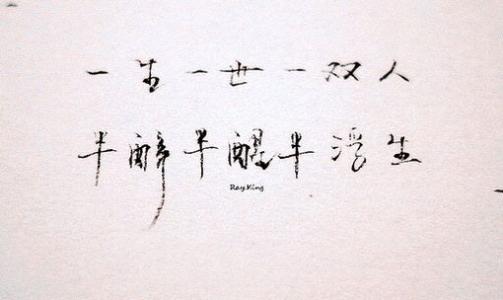 一生一世一双人
半醉半醒半浮生
Ray.King